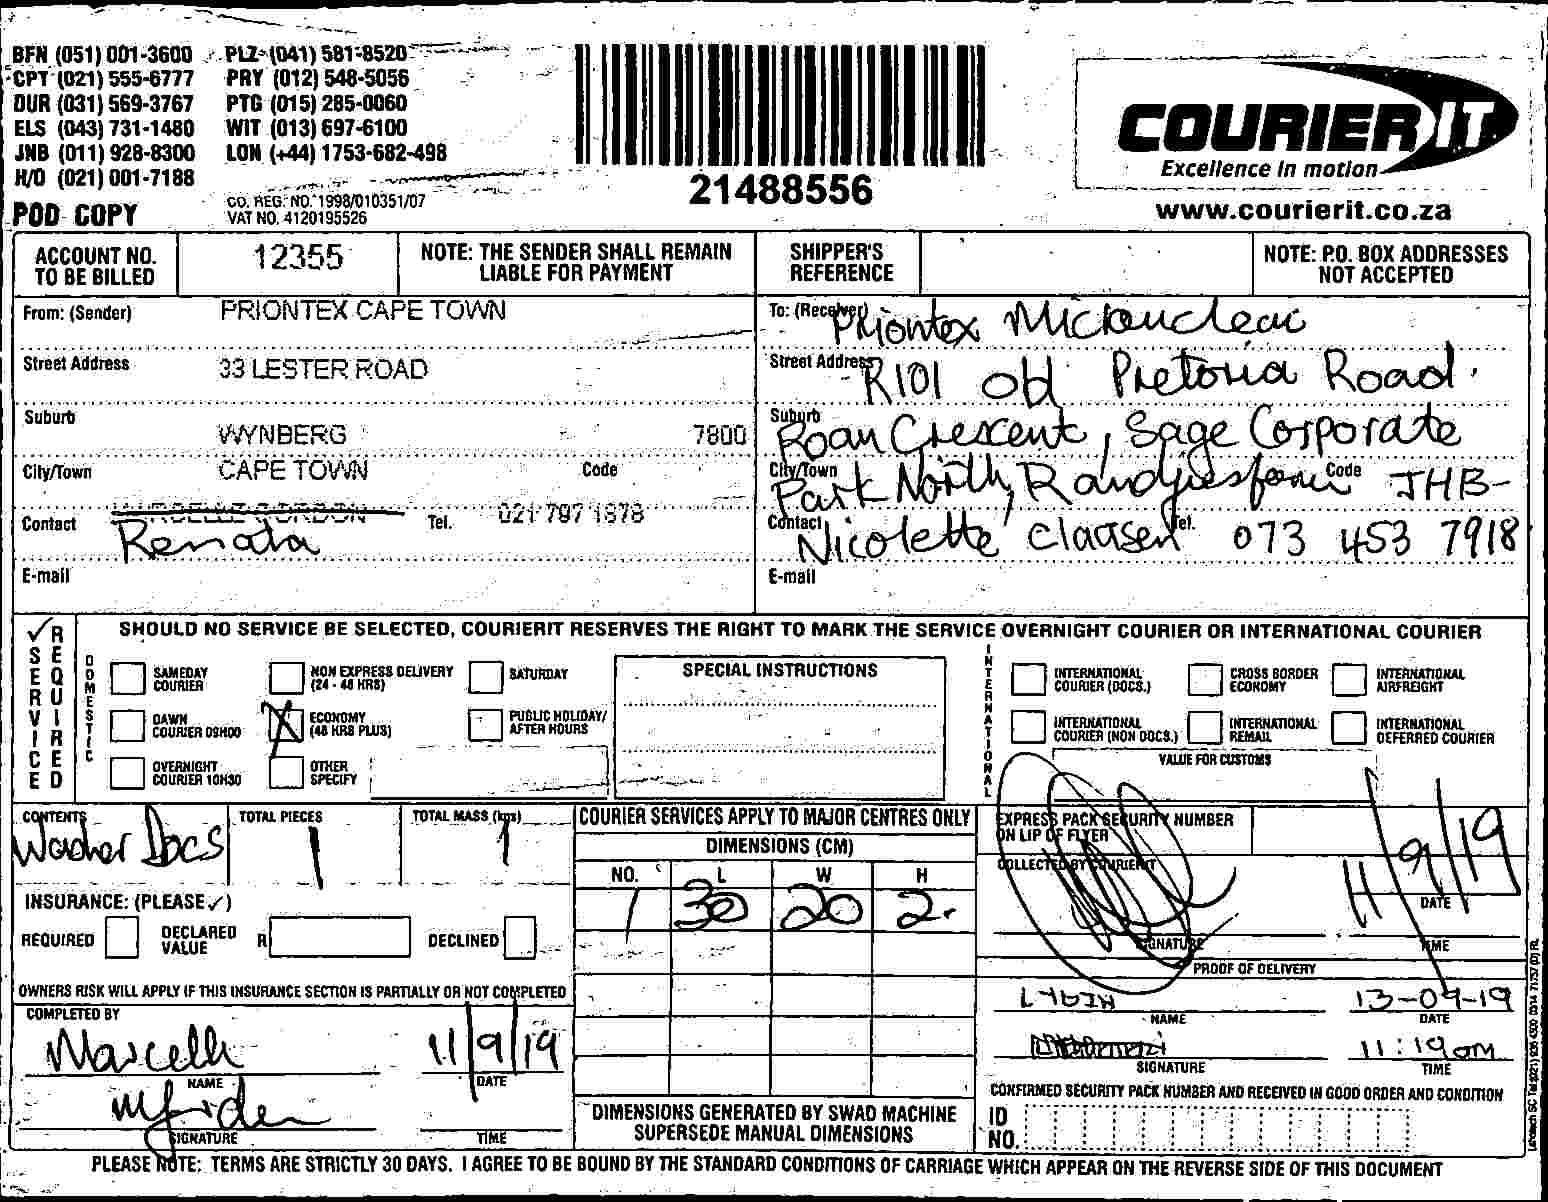 BFN (051) 001-3600 PLZ (041) 581-8520
CPT (021) 555-6777 PRY (012) 548-5056
DUR (031) 569-3767 PTG (015) 285-0060
ELS (043) 731-1480 WIT (013) 697-6100
JNB (011) 928-8300 LON (+44) 1753-682-498
H/O (021) 001-7188
CO. REG. NO. 1998/010351/07
POD COPY VAT NO. 4120195526
21488556
COURIER IT
Excellence in motion
www.courierit.co.za
ACCOUNT NO. TO BE BILLED 12355
NOTE: THE SENDER SHALL REMAIN LIABLE FOR PAYMENT
SHIPPER'S REFERENCE
NOTE: P.O. BOX ADDRESSES NOT ACCEPTED
From: (Sender) PRIONTEX CAPE TOWN
Street Address 33 LESTER ROAD
Suburb WYNBERG 7800
City/Town CAPE TOWN Code
Contact Renata Tel. 021 797 1878
E-mail
To: (Receiver) Priontex Micronclean
Street Address R101 Old Pretoria Road.
Suburb Roan Crescent, Sage Corporate
City/Town Park North, Randjiesfontein Code JHB-
Contact Nicolette Claasen Tel. 073 453 7918
E-mail
SERVICE REQUIRED
SHOULD NO SERVICE BE SELECTED, COURIERIT RESERVES THE RIGHT TO MARK THE SERVICE OVERNIGHT COURIER OR INTERNATIONAL COURIER
DOMESTIC
SAMEDAY COURIER
NON EXPRESS DELIVERY (24 - 48 HRS)
SATURDAY
DAWN COURIER 09H00
ECONOMY (48 HRS PLUS)
PUBLIC HOLIDAY/ AFTER HOURS
OVERNIGHT COURIER 10H30
OTHER SPECIFY
SPECIAL INSTRUCTIONS
INTERNATIONAL
INTERNATIONAL COURIER (DOCS.)
CROSS BORDER ECONOMY
INTERNATIONAL AIRFREIGHT
INTERNATIONAL COURIER (NON DOCS.)
INTERNATIONAL REMAIL
INTERNATIONAL DEFERRED COURIER
VALUE FOR CUSTOMS
CONTENTS Docs
TOTAL PIECES 1
TOTAL MASS (kgs) 1
INSURANCE: (PLEASE ✓)
REQUIRED DECLARED VALUE R DECLINED
OWNERS RISK WILL APPLY IF THIS INSURANCE SECTION IS PARTIALLY OR NOT COMPLETED
COMPLETED BY
Marcelle 11/9/19
NAME DATE
SIGNATURE TIME
COURIER SERVICES APPLY TO MAJOR CENTRES ONLY
DIMENSIONS (CM)
NO. L W H
1 30 20 2.
DIMENSIONS GENERATED BY SWAD MACHINE
SUPERSEDE MANUAL DIMENSIONS
EXPRESS PACK SECURITY NUMBER
ON LIP OF FLYER
COLLECTED BY COURIERIT
11/9/19
DATE
SIGNATURE TIME
PROOF OF DELIVERY
13-09-19
NAME DATE
11:19 am
SIGNATURE TIME
CONFIRMED SECURITY PACK NUMBER AND RECEIVED IN GOOD ORDER AND CONDITION
ID NO.
PLEASE NOTE: TERMS ARE STRICTLY 30 DAYS. I AGREE TO BE BOUND BY THE STANDARD CONDITIONS OF CARRIAGE WHICH APPEAR ON THE REVERSE SIDE OF THIS DOCUMENT